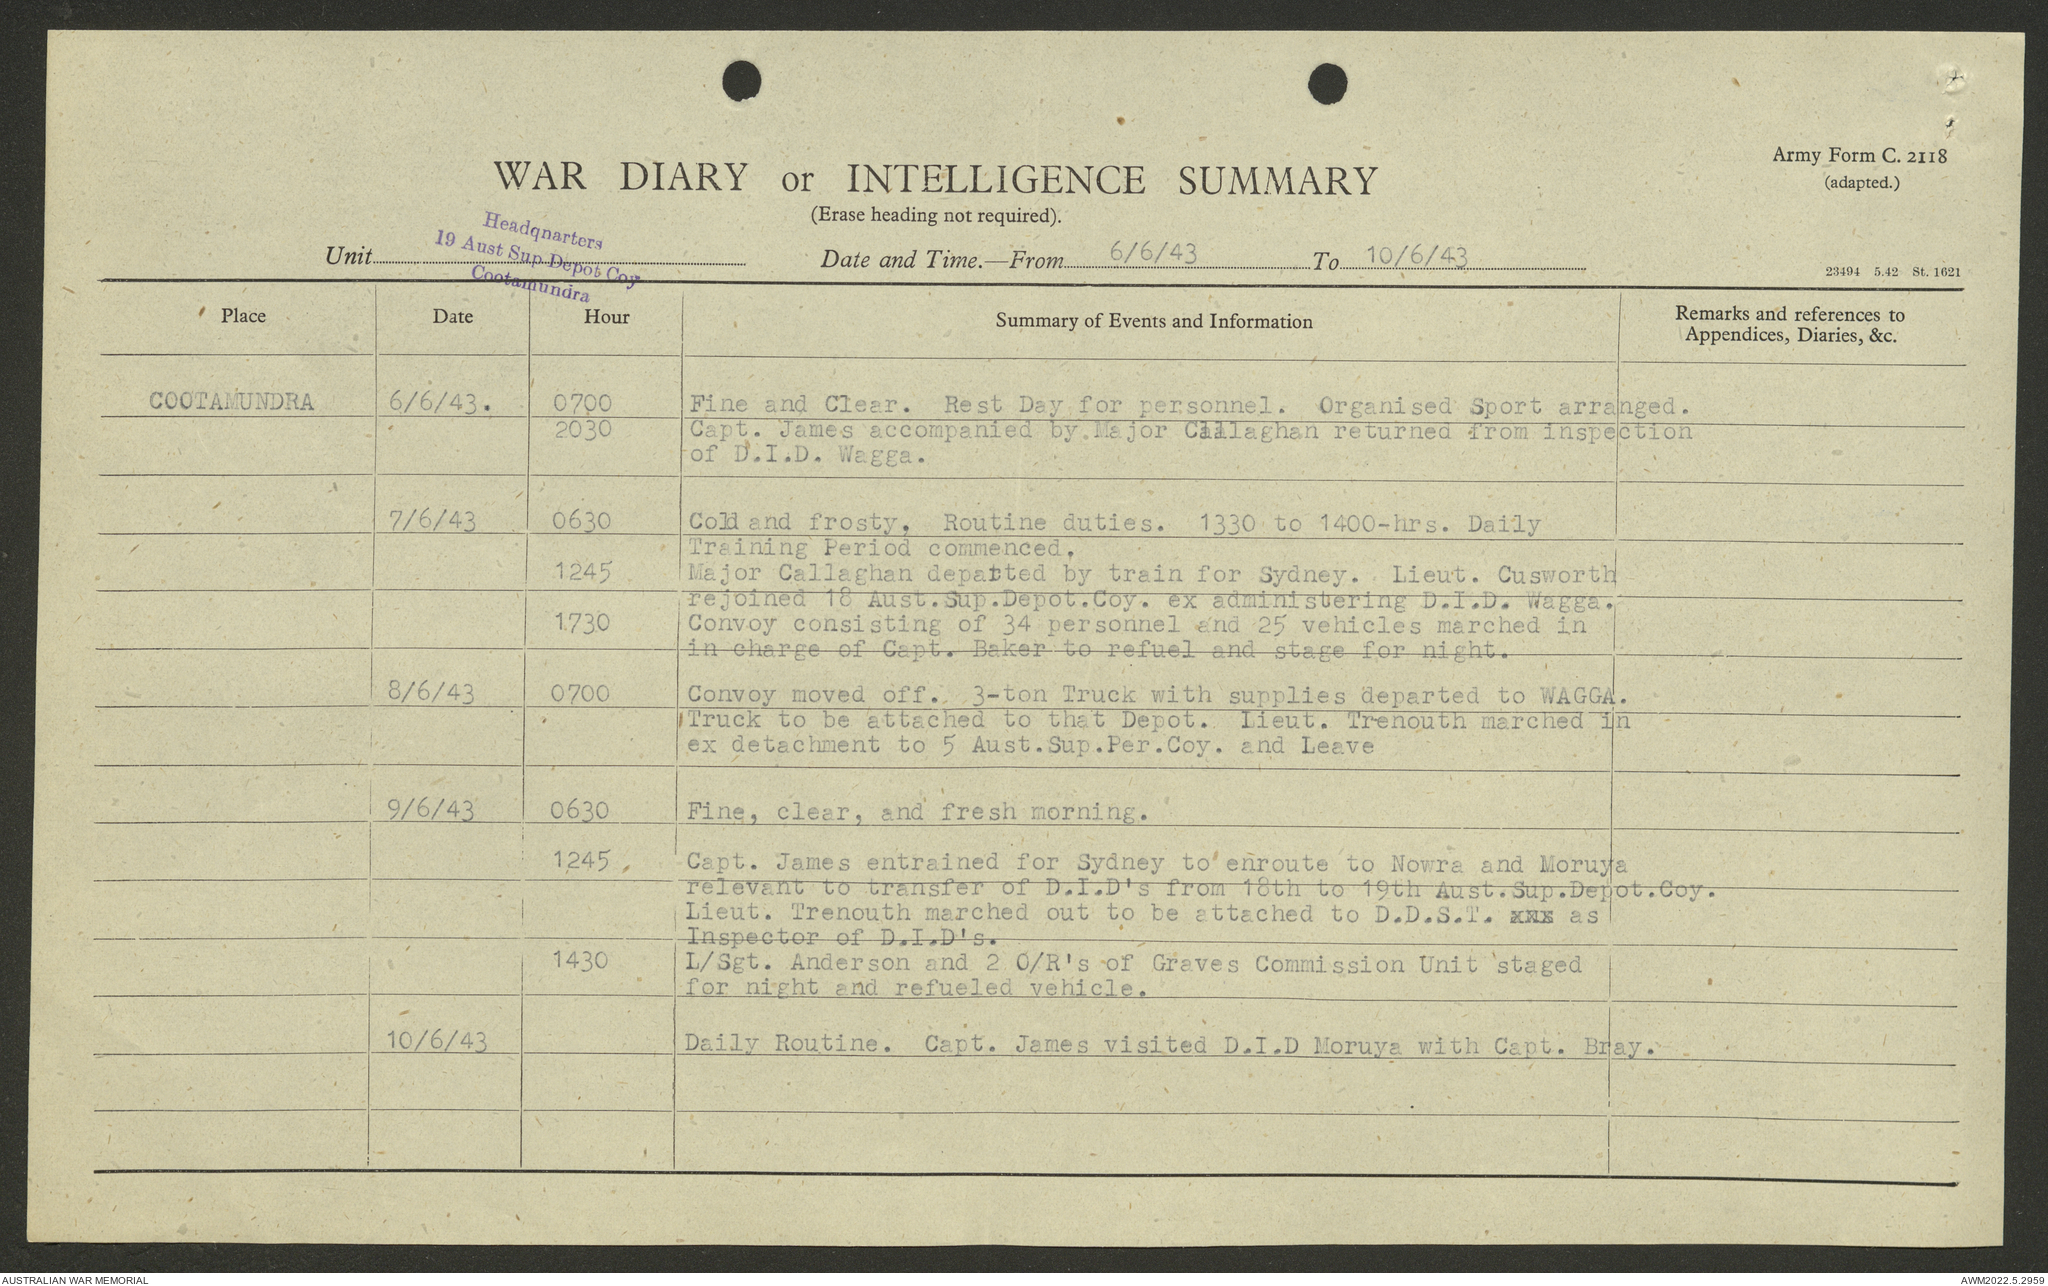 WAR DIARY or INTELLIGENCE SUMMARY
(Erase heading not required).
Army Form C. 2118
(adapted.)
Headquarters
19 Aust Sup Depot Coy
Cootamundra
Unit
Date and Time.—From 6/6/43 To 10/6/43
23494 5.42 St. 1621
Place Date Hour Summary of Events and Information Remarks and references to
Appendices, Diaries, &c.
COOTAMUNDRA 6/6/43. 0700 Fine and Clear. Rest Day for personnel. Organised Sport arranged.
2030 Capt. James accompanied by Major Callaghan returned from inspection
of D.I.D. Wagga.
7/6/43 0630 Cold and frosty, Routine duties. 1330 to 1400-hrs. Daily
Training Period commenced,
1245 Major Callaghan departed by train for Sydney. Lieut. Cusworth
rejoined 18 Aust.Sup.Depot.Coy. ex administering D.I.D. Wagga.
1730 Convoy consisting of 34 personnel and 25 vehicles marched in
in charge of Capt. Baker to refuel and stage for night.
8/6/43 0700 Convoy moved off. 3-ton Truck with supplies departed to WAGGA.
Truck to be attached to that Depot. Lieut. Trenouth marched in
ex detachment to 5 Aust.Sup.Per.Coy. and Leave
9/6/43 0630 Fine, clear, and fresh morning.
1245 Capt. James entrained for Sydney to enroute to Nowra and Moruya
relevant to transfer of D.I.D's from 18th to 19th Aust.Sup.Depot.Coy.
Lieut. Trenouth marched out to be attached to D.D.S.T. xxx as
Inspector of D.I.D's.
1430 L/Sgt. Anderson and 2 O/R's of Graves Commission Unit staged
for night and refueled vehicle.
10/6/43 Daily Routine. Capt. James visited D.I.D Moruya with Capt. Bray.
AUSTRALIAN WAR MEMORIAL
AWM2022.5.2959